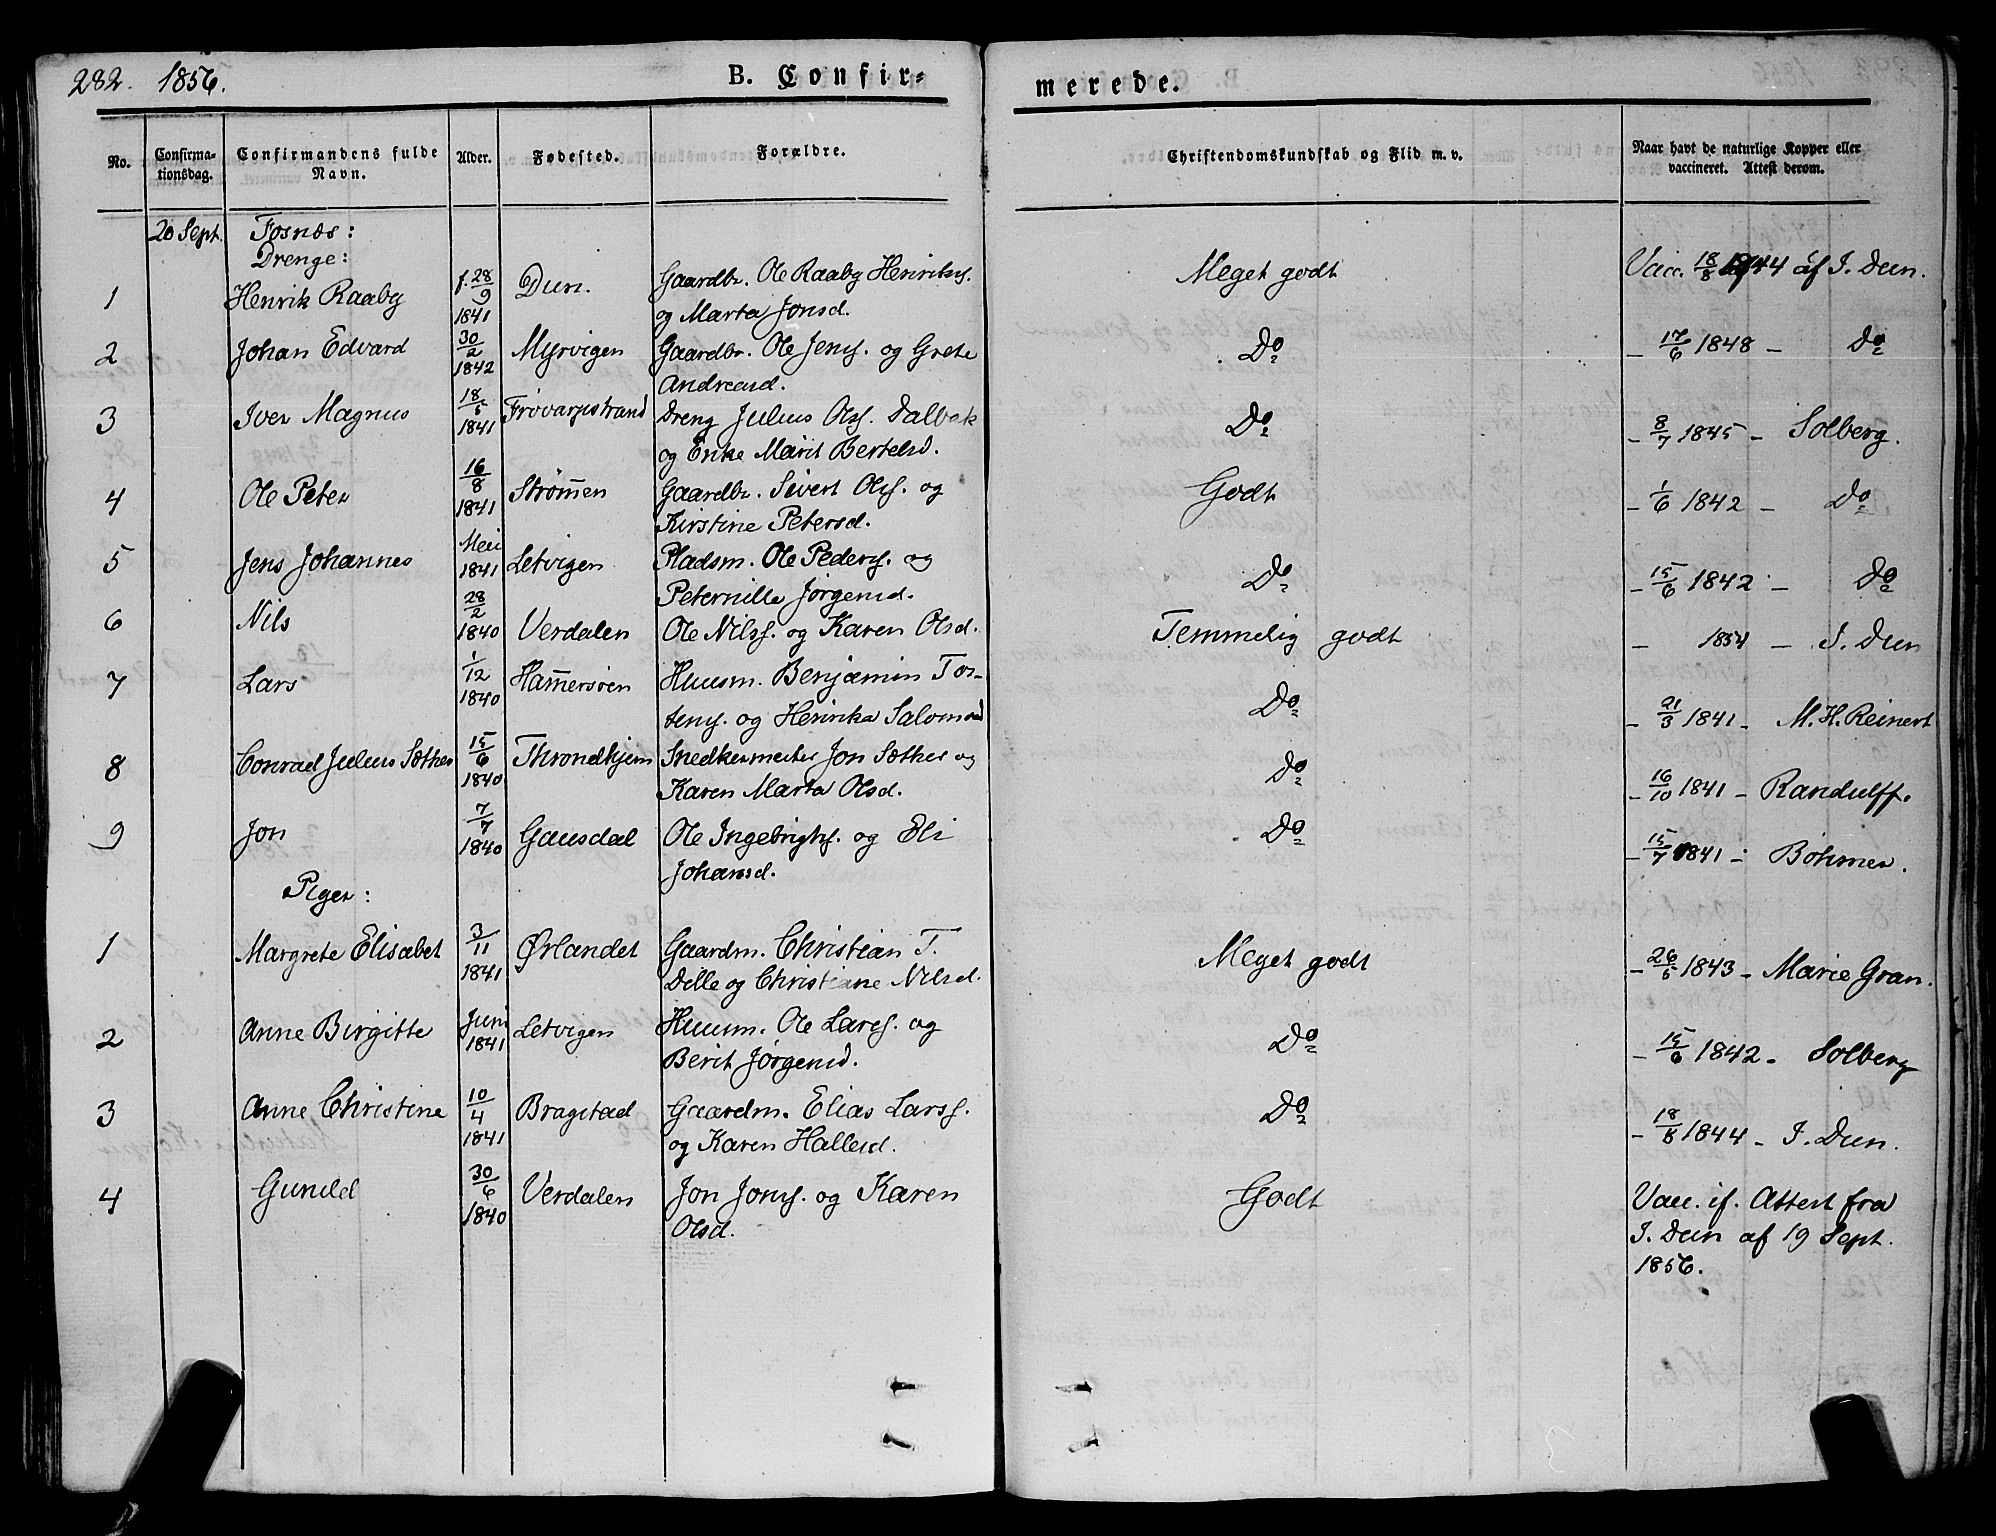 282. 1856. B. Confir-merede.
No. Confirma-tionsdag. Confirmandens fulde Navn. Alder. Fødested. Forældre. Christendomskundskab og Flid m. v. Naar havt de naturlige Kopper eller vaccineret. Attest derom.
20 Sept. Fosnæs:
Drenge:
1 Henrik Raaby f. 28/9 1841 Dun. Gaardbr. Ole Raaby Henriks. og Marta Jonsd. Meget godt Vacc. 18/8 1844 af I. Dun.
2 Johan Edvard 30/2 1842 Myrvigen Gaardbr. Ole Jens. og Grete Andreasd. Do - 17/6 1848 - Do
3 Iver Magnus 18/5 1841 Dreng Julius Ols. Dalbak og Enke Marit Bertelsd. Do - 8/7 1845 - Solberg.
4 Ole Peter 16/8 1841 Strømen Gaardbr. Sivert Ols. og Kirstine Petersd. Godt - 1/6 1842 - Do
5 Jens Johannes Mai 1841 Letvigen Pladsm. Ole Peders. og Peternille Jørgensd. Do - 15/6 1842 - Do
6 Nils 28/2 1840 Verdalen Ole Nilss. og Karen Olsd. Temmelig godt - 1854 - I. Dun
7 Lars 1/12 1840 Hamersøen Huusm. Benjamin Tor-stens. og Henrika Salomonsd Do - 21/3 1841 - M. H. Reinert
8 Conrad Julius Sæther 15/6 1840 Throndhjem Snedkermester Jon Sæther og Karen Marta Olsd. Do - 16/10 1841 - Randulff.
9 Jon 7/7 1840 Gausdal Ole Ingebrigts. og Eli Johansd. Do - 15/7 1841 - Bøhmer.
Piger:
1 Margrete Elisabet 3/11 1841 Ørlandet Gaardm. Christian T. Delle og Christiane Nilsd. Meget godt - 26/5 1843 - Marie Gran.
2 Anne Birgitte Juni 1841 Letvigen Huusm. Ole Lars. og Berit Jørgensd. Do - 15/6 1842 - Solberg
3 Anne Christine 10/4 1841 Bragstad Gaardm. Elias Larss. og Karen Hallesd. Do - 18/8 1844 - I. Dun.
4 Gunild 30/6 1840 Verdalen Jon Jons. og Karen Olsd. Godt Vacc. if. Attest fra I. Dun af 19 Sept. 1856.